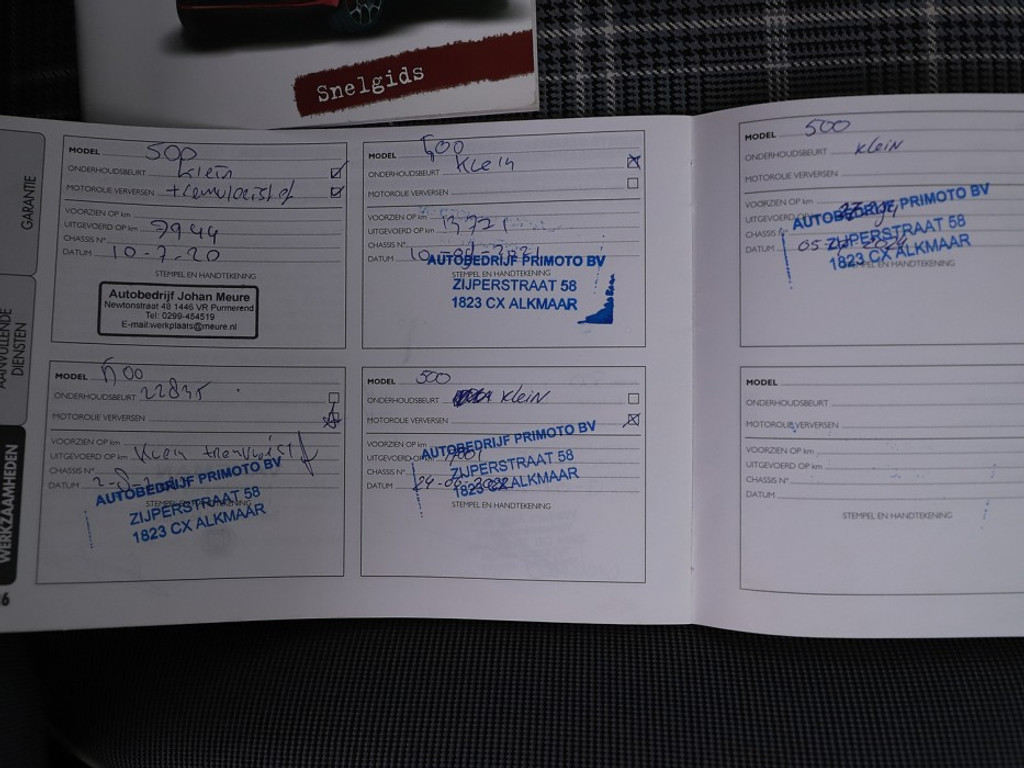 Snelgids
GARANTIE
AANVULLENDE
DIENSTEN
WERKZAAMHEDEN
26
MODEL 500
ONDERHOUDSBEURT Klein
MOTOROLIE VERVERSEN
VOORZIEN OP km
UITGEVOERD OP km 9944
CHASSIS N°
DATUM 10-7-20
STEMPEL EN HANDTEKENING
Autobedrijf Johan Meure
Newtonstraat 48 1446 VR Purmerend
Tel: 0299-454519
E-mail:werkplaats@meure.nl
MODEL 500
ONDERHOUDSBEURT Klein
VOORZIEN OP km
UITGEVOERD OP km 13721
CHASSIS N°
DATUM
AUTOBEDRIJF PRIMOTO BV
STEMPEL EN HANDTEKENING
ZIJPERSTRAAT 58
1823 CX ALKMAAR
MODEL 500
ONDERHOUDSBEURT 22835
MOTOROLIE VERVERSEN
VOORZIEN OP km
UITGEVOERD OP km Klein
CHASSIS N°
DATUM
AUTOBEDRIJF PRIMOTO BV
STEMPEL EN HANDTEKENING
ZIJPERSTRAAT 58
1823 CX ALKMAAR
MODEL 500
ONDERHOUDSBEURT Klein
MOTOROLIE VERVERSEN
VOORZIEN OP km
UITGEVOERD OP km
AUTOBEDRIJF PRIMOTO BV
CHASSIS N°
DATUM
ZIJPERSTRAAT 58
1823 CX ALKMAAR
STEMPEL EN HANDTEKENING
MODEL 500
ONDERHOUDSBEURT Klein
MOTOROLIE VERVERSEN
VOORZIEN OP km
UITGEVOERD OP km
AUTOBEDRIJF PRIMOTO BV
CHASSIS N°
DATUM
ZIJPERSTRAAT 58
1823 CX ALKMAAR
STEMPEL EN HANDTEKENING
MODEL
ONDERHOUDSBEURT
MOTOROLIE VERVERSEN
VOORZIEN OP km
UITGEVOERD OP km
CHASSIS N°
DATUM
STEMPEL EN HANDTEKENING